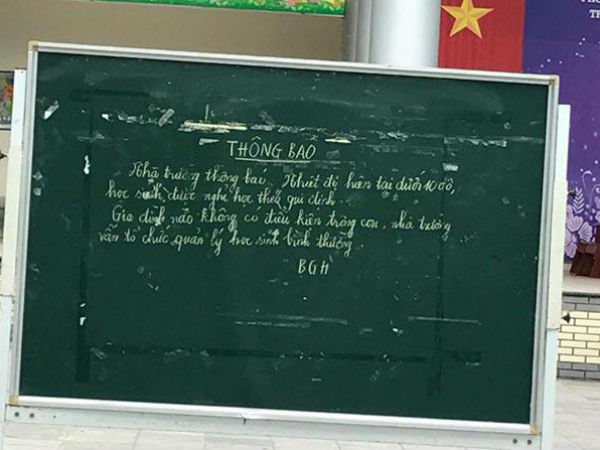 THÔNG BÁO
Nhà trường thông báo. Nhiệt độ hiện tại dưới 10 độ,
học sinh được nghỉ học theo qui định.
Gia đình nào không có điều kiện trông con, nhà trường
vẫn tổ chức quản lý học sinh bình thường.
BGH